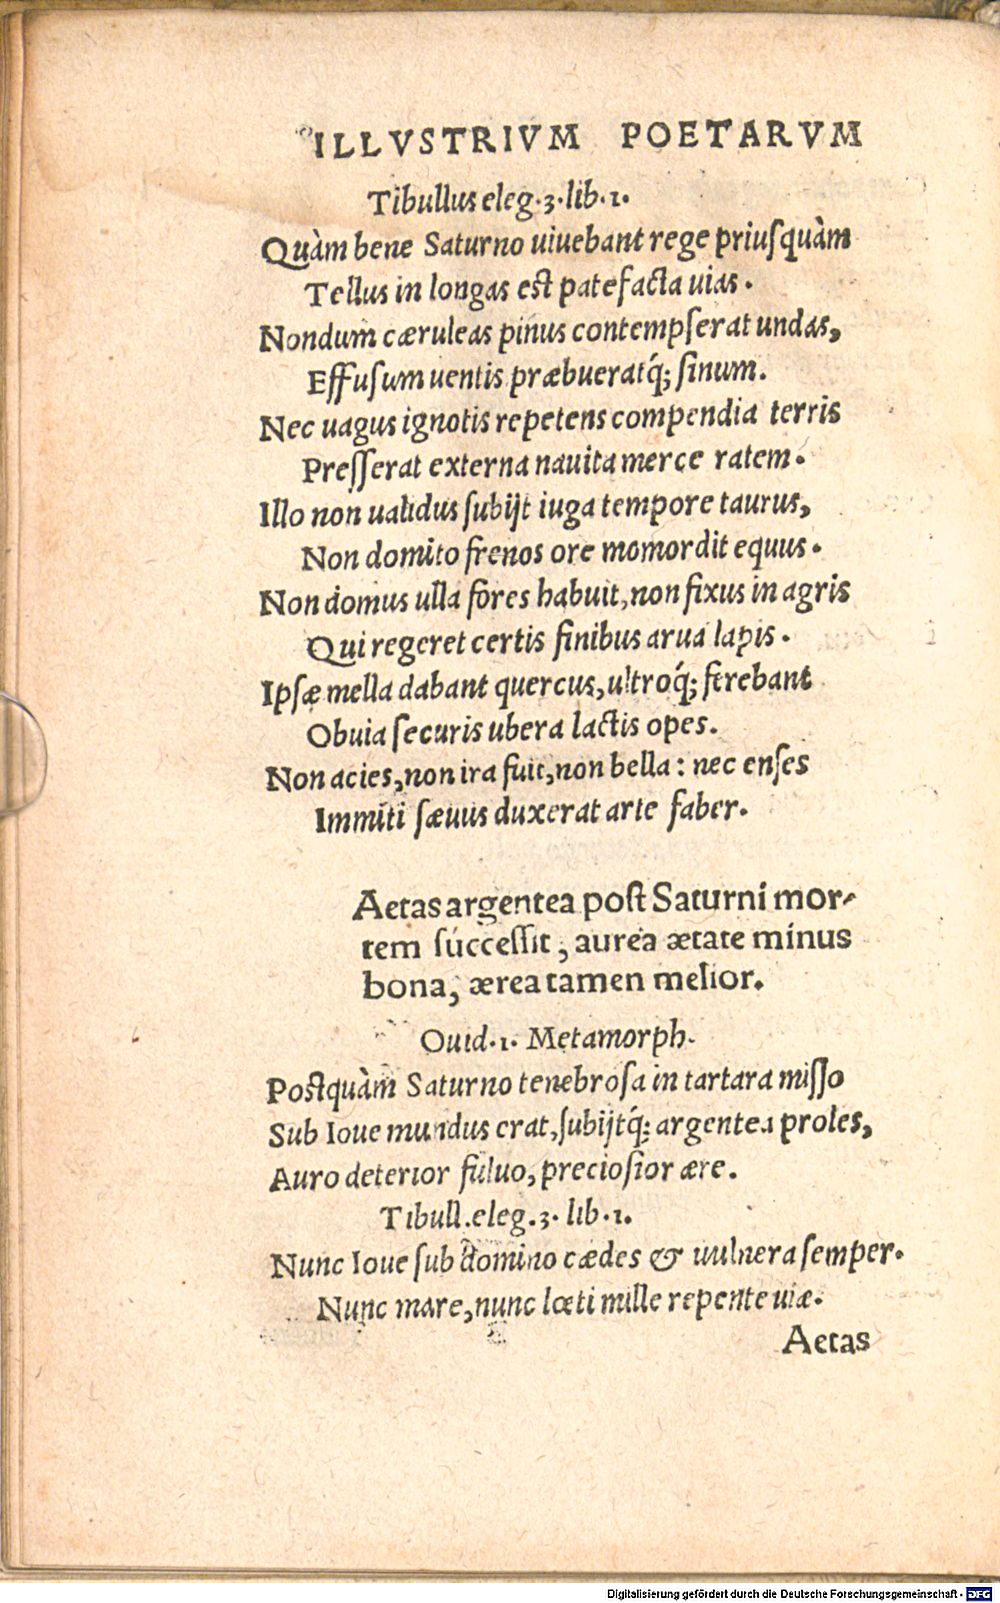 ILLVSTRIVM POETARVM
Tibullus eleg.3.lib.1.
Quàm bene Saturno uiuebant rege priuſquàm
Tellus in longas est patefacta uias.
Nondum cæruleas pinus contempſerat undas,
Effuſum uentis præbueratq́; ſinum.
Nec uagus ignotis repetens compendia terris
Preſſerat externa nauita merce ratem.
Illo non ualidus ſubijt iuga tempore taurus,
Non domito frenos ore momordit equus.
Non domus ulla fores habuit, non fixus in agris
Qui regeret certis finibus arua lapis.
Ipſæ mella dabant quercus, ultroq́; ferebant
Obuia ſecuris ubera lactis opes.
Non acies, non ira fuit, non bella: nec enſes
Immiti ſæuus duxerat arte faber.
Aetas argentea post Saturni mor-
tem ſucceſſit, aurea ætate minus
bona, ærea tamen melior.
Ouid.1. Metamorph.
Postquàm Saturno tenebroſa in tartara miſſo
Sub Ioue mundus erat, ſubijtq́; argentea proles,
Auro deterior fuluo, precioſior ære.
Tibull.eleg.3. lib.1.
Nunc Ioue ſub domino cædes & uulnera ſemper.
Nunc mare, nunc lœti mille repente uiæ.
Aetas
Digitalisierung gefördert durch die Deutsche Forschungsgemeinschaft - DFG